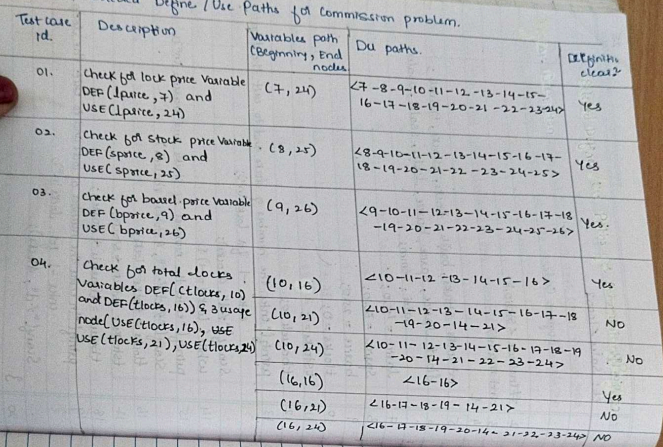 Define / Use Paths for Commission problem.
Test case id
Description
Variables path (Beginning, End nodes
Du paths.
clear?
01.
Check for lock price Variable
DEF (lprice, 7) and
USE (lprice, 24)
(7, 24)
<7-8-9-10-11-12-13-14-15-
16-17-18-19-20-21-22-23-24>
Yes
02.
Check for Stock price Variable
DEF (sprice, 8) and
USE (sprice, 25)
(8, 25)
<8-9-10-11-12-13-14-15-16-17-
18-19-20-21-22-23-24-25>
Yes
03.
Check for barrel price Variable
DEF (bprice, 9) and
USE (bprice, 26)
(9, 26)
<9-10-11-12-13-14-15-16-17-18
-19-20-21-22-23-24-25-26>
Yes.
04.
Check for total clocks
Variables DEF((tlocks, 10)
and DEF(tlocks, 16)) & 3 usage
node(USE(tlocks, 16), USE
USE(tlocks, 21), USE(tlocks, 24)
(10, 16)
<10-11-12-13-14-15-16>
Yes
(10, 21)
<10-11-12-13-14-15-16-17-18
-19-20-14-21>
NO
(10, 24)
<10-11-12-13-14-15-16-17-18-19
-20-14-21-22-23-24>
NO
(16, 16)
<16-16>
Yes
(16, 21)
<16-17-18-19-14-21>
NO
(16, 24)
<16-17-18-19-20-14-21-22-23-24>
NO